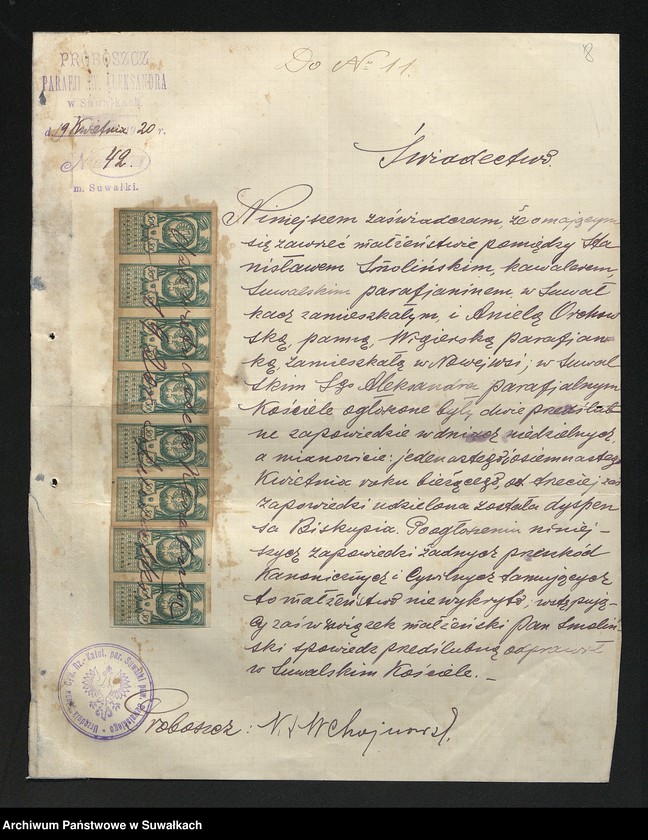 8
Do № 11.
PROBOSZCZ
PARAFII ŚW. ALEKSANDRA
w Suwałkach
d. 19 Kwietnia 1920 r.
№ 42.
m. Suwałki.
Świadectwo.
Niniejszem zaświadczam, że o mającym
się zawrzeć małżeństwie pomiędzy Sta
nisławem Smolińskim, kawalerem,
Suwalskim parafjaninem, w Suwał
kach zamieszkałym, i Anielą Orchow
ską, panną, Wigierską parafjan
ką, zamieszkałą w Nowejwsi; w Suwal
skim Śgo Aleksandra parafjalnym
Kościele ogłoszone były dwie przedślub
ne zapowiedzie w dniach niedzielnych,
a mianowicie: jedenastego, osiemnastego
Kwietnia roku bieżącego, od trzeciej zaś
zapowiedzi udzielona została dyspen
sa Biskupia. Po ogłoszeniu niniej-
szych zapowiedzi żadnych przeszkód
Kanonicznych i Cywilnych tamujących
to małżeństwo nie wykryto, wstępują-
cy zaś w związek małżeński Pan Smoliń
ski spowiedź przedślubną odprawił
w Suwalskim Kościele. —
Proboszcz: Chojnowski
Archiwum Państwowe w Suwałkach